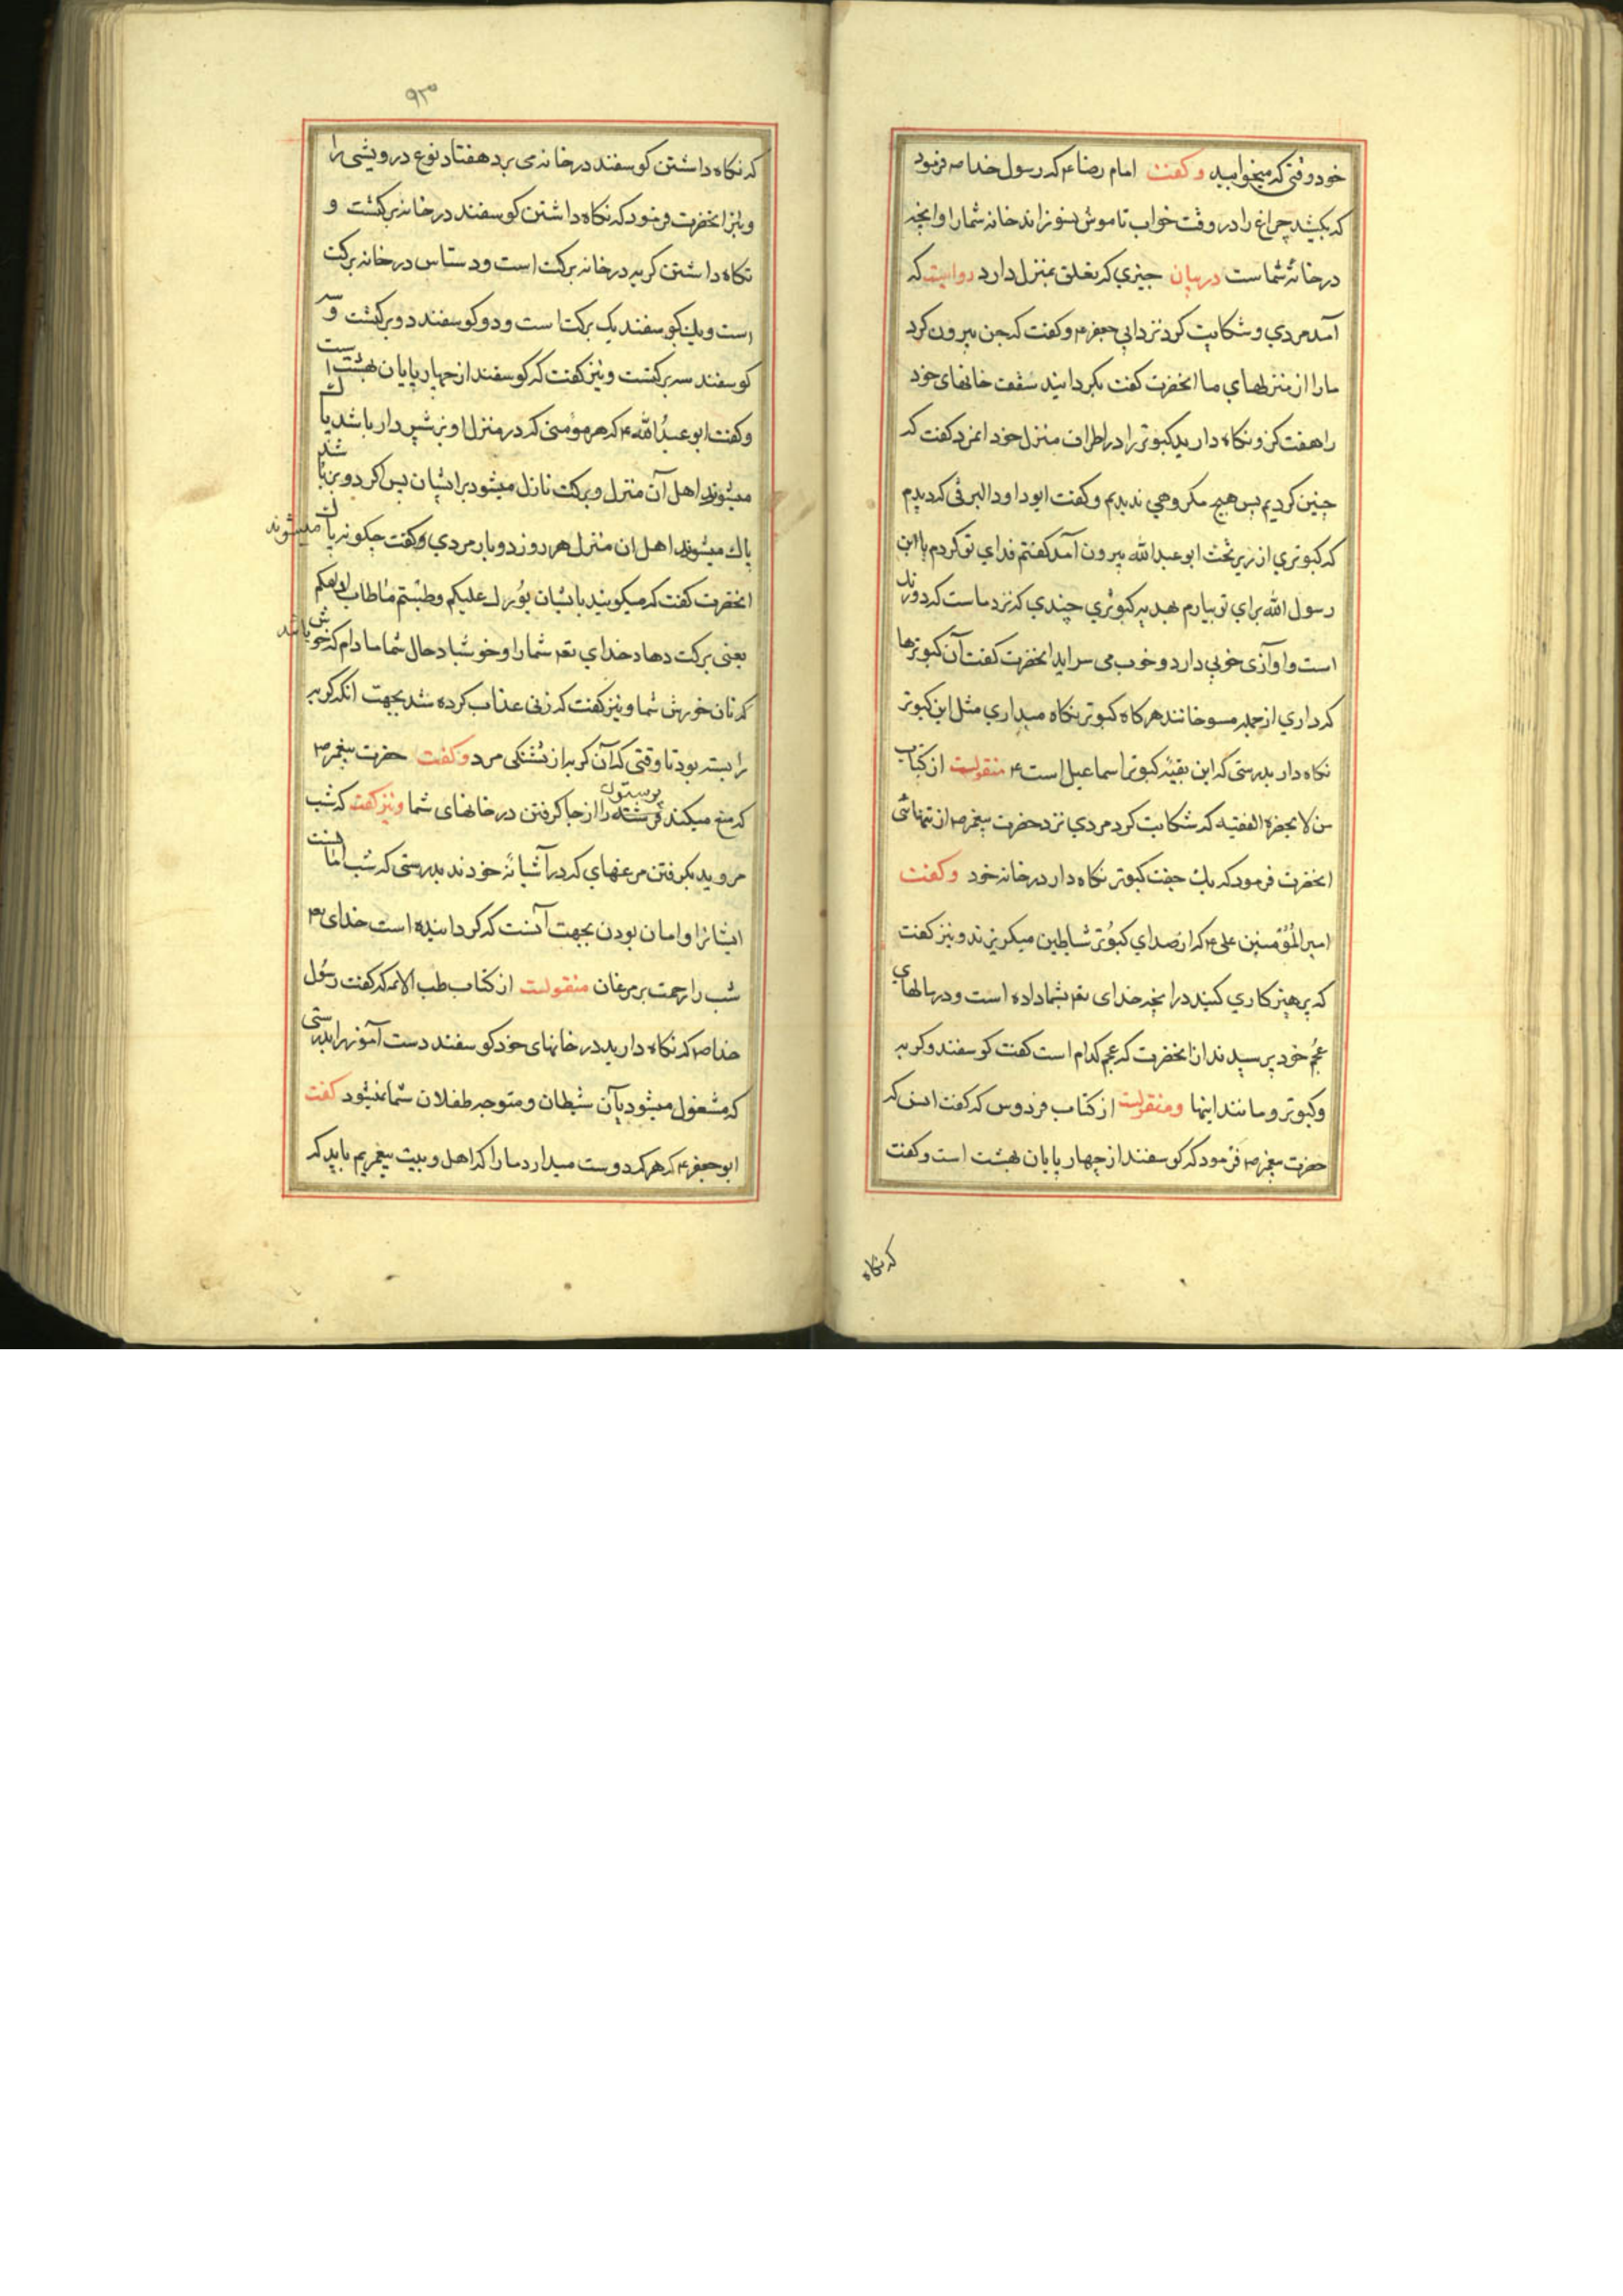 خود وقتی که میخوابید وکفت امام رضا ع که رسول خدا ص فرمود
که بکشید چراغ را در وقت خواب تا موش نسوزاند خانه شما را وانچه
در خانهٔ شماست در بیان چیزی که تعلق بمنزل دارد روایست که
آمد مردی و شکایت کرد نزد ابی جعفر ع وکفت که جن بیرون کرد
مارا از منزلهای ما انحضرت کفت بکردانید سقف خانهای خود
را هفت کز ونکاه دارید کبوتر را در اطراف منزل خود انمرد کفت که
چنین کردیم پس هیچ مکروهی ندیدیم وکفت ابو داود البرقی که دیدم
که کبوتری از زیر تخت ابو عبد الله بیرون آمد کفتم فدای تو کردم یا ابن
رسول الله برای تو بیارم هدیه کبوتری چندی که نزد ماست که دو رنک
است واوازی خوبی دارد وخوب می سراید انحضرت کفت آن کبوترها
که داری از جمله مسوخانند هرکاه کبوتر نکاه میداری مثل این کبوتر
نکاه دار بدرستی که این بقیهٔ کبوتر اسماعیل است ع منقولست از کتاب
من لا یحضره الفقیه که شکایت کرد مردی نزد حضرت پیغمبر ص از تنهائی
انحضرت فرمود که یک جفت کبوتر نکاه دار در خانه خود وکفت
امیر المؤمنین علی ع که از صدای کبوتر شیاطین میکریزند ونیز کفت
که پرهیزکاری کنید در انچه خدای تعم بشما داده است ودر مالهای
عجم خود پرسیدند از انحضرت که عجم کدام است کفت کوسفند وکربه
وکبوتر ومانند اینها ومنقولست از کتاب فردوس که کفت انس که
حضرت پیغمبر ص فرمود که کوسفند از چهار پایان بهشت است وکفت
که نکاه
۹۳
که نکاه داشتن کوسفند در خانه می برد هفتاد نوع درویشی را
ونیز انحضرت فرمود که نکاه داشتن کوسفند در خانه برکتست و
نکاه داشتن کربه در خانه برکت است ودستاس در خانه برکت
است ویک کوسفند یک برکت است ودو کوسفند دو برکتست وسه
کوسفند سه برکتست ونیز کفت که کوسفند از چهار پایان بهشت است
وکفت ابو عبد الله ع که هر مؤمنی که در منزل او بز شیر دار باشد پاک
میشوند اهل آن منزل وبرکت نازل میشود بر ایشان پس اکر دو بز باشد
پاک میشوند اهل ان منزل هر روز دوبار مردی وکفت چکونه پاک میشوند
انحضرت کفت که میکویند بایشان بورک علیکم وطبتم ما طاب ادامکم
یعنی برکت دهاد خدای تعم شما را وخوشباد حال شما مادام که خوش باشد
که نان خورش شما ونیز کفت که زنی عذاب کرده شد بجهت انکه کربه
را بسته بود تا وقتی که آن کربه از تشنکی مرد وکفت حضرت پیغمبر ص
که منع میکند فرشته را از جا کرفتن در خانهای شما ونیز کفت که شب
پرستوک
مروید بکرفتن مرغهای که در آشیانهٔ خودند بدرستی که شب امانست
ایشانرا وامان بودن بجهت آنست که کردانیده است خدای تعم
شب را رحمت بر مرغان منقولست از کتاب طب الائمه که کفت رسول
خدا ص که نکاه دارید در خانهای خود کوسفند دست آموز را بدرستی
که مشغول میشود بآن شیطان ومتوجه طفلان شما نمیشود کفت
ابو جعفر ع که هر که دوست میدارد ما را که اهل وبیت پیغمبریم باید که